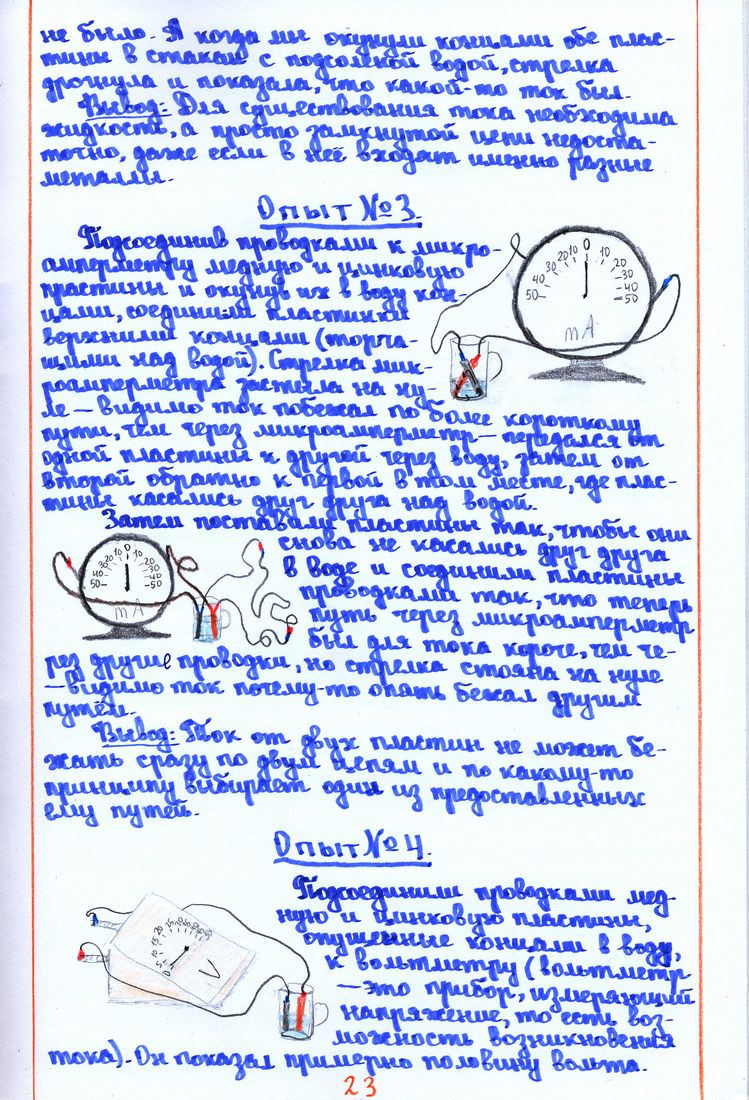 не было. А когда мы окунули концами обе плас-
тины в стакан с подсоленой водой, стрелка
дрогнула и показала, что какой-то ток был.
Вывод: Для существования тока необходима
жидкость, а просто замкнутой цепи недоста-
точно, даже если в неё входят именно разные
металлы.
Опыт №3.
Подсоединив проводками к микро-
амперметру медную и цинковую
пластины и окунув их в воду кон-
цами, соединили пластинки
верхними концами (торча-
щими над водой). Стрелка мик-
роамперметра застыла на ну-
ле – видимо ток побежал по более короткому
пути, чем через микроамперметр – передался от
одной пластины к другой через воду, затем от
второй обратно к первой в том месте, где плас-
тины касались друг друга над водой.
50 40 30 20 10 0 10 20 30 40 50
mA
Затем поставили пластины так, чтобы они
снова не касались друг друга
в воде и соединили пластины
проводками так, что теперь
путь через микроамперметр
был для тока короче, чем че-
рез другие проводки, но стрелка стояла на нуле
– видимо ток почему-то опять бежал другим
путём.
50 40 30 20 10 0 10 20 30 40 50
mA
Вывод: Ток от двух пластин не может бе-
жать сразу по двум цепям и по какому-то
принципу выбирает один из предоставленных
ему путей.
Опыт №4.
Подсоединили проводками мед-
ную и цинковую пластины,
опущенные концами в воду,
к вольтметру (вольтметр
– это прибор, измеряющий
напряжение, то есть воз-
можность возникновения
тока). Он показал примерно половину вольта.
V
23